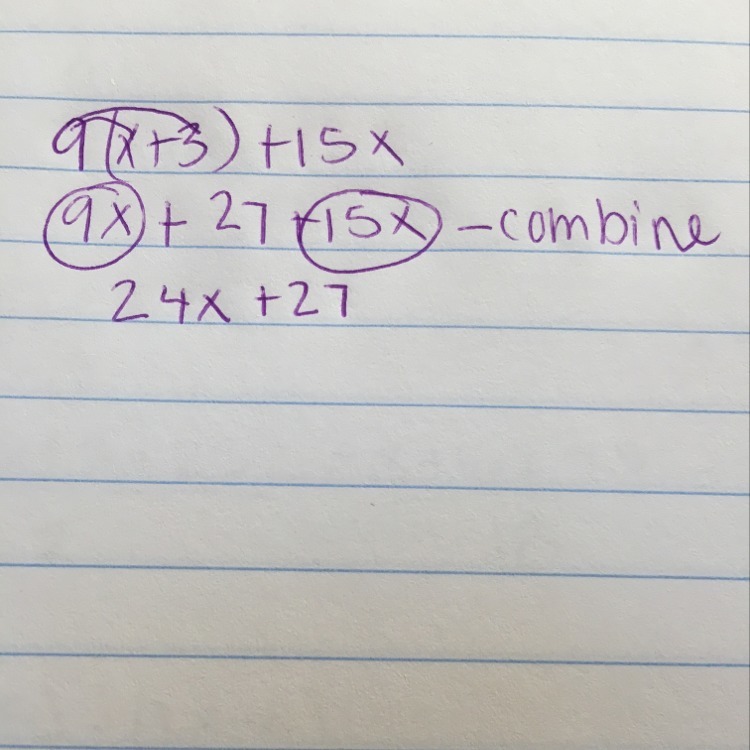 9(x+3) +15x
9x + 27 +15x - combine
24x +27